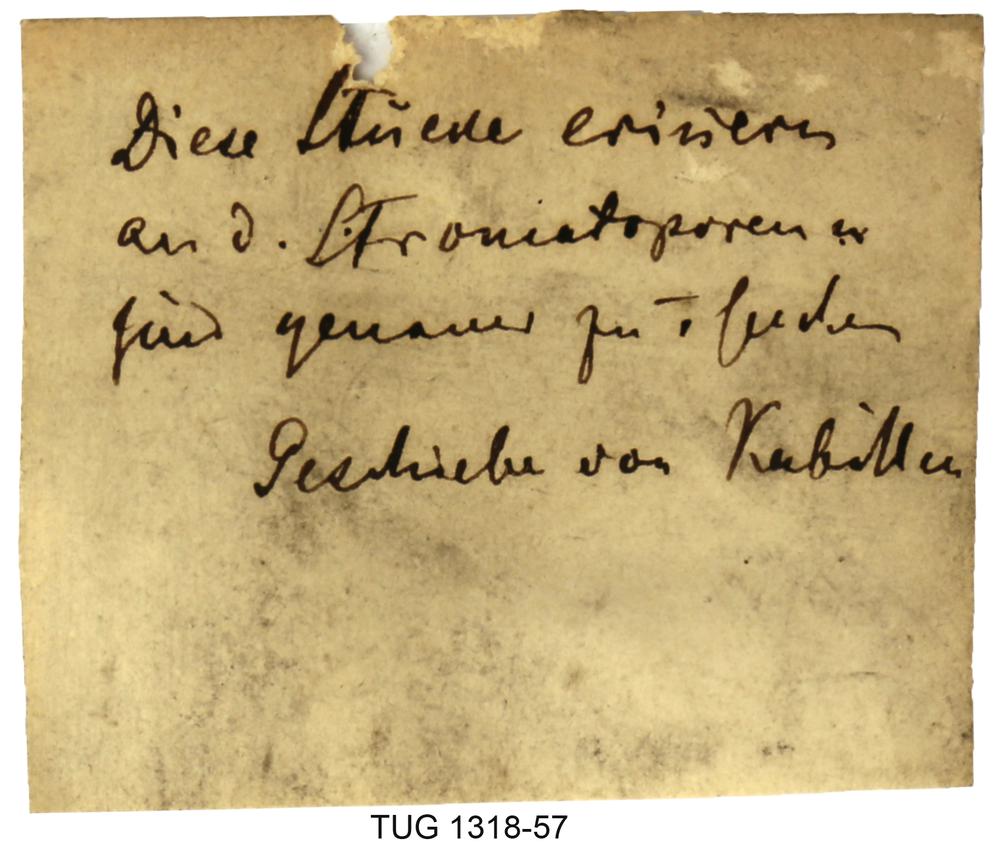 Diese Stücke erinnern
an d. Stromatoporen u
sind genauer zu
Geschiebe von Kabillen
TUG 1318-57